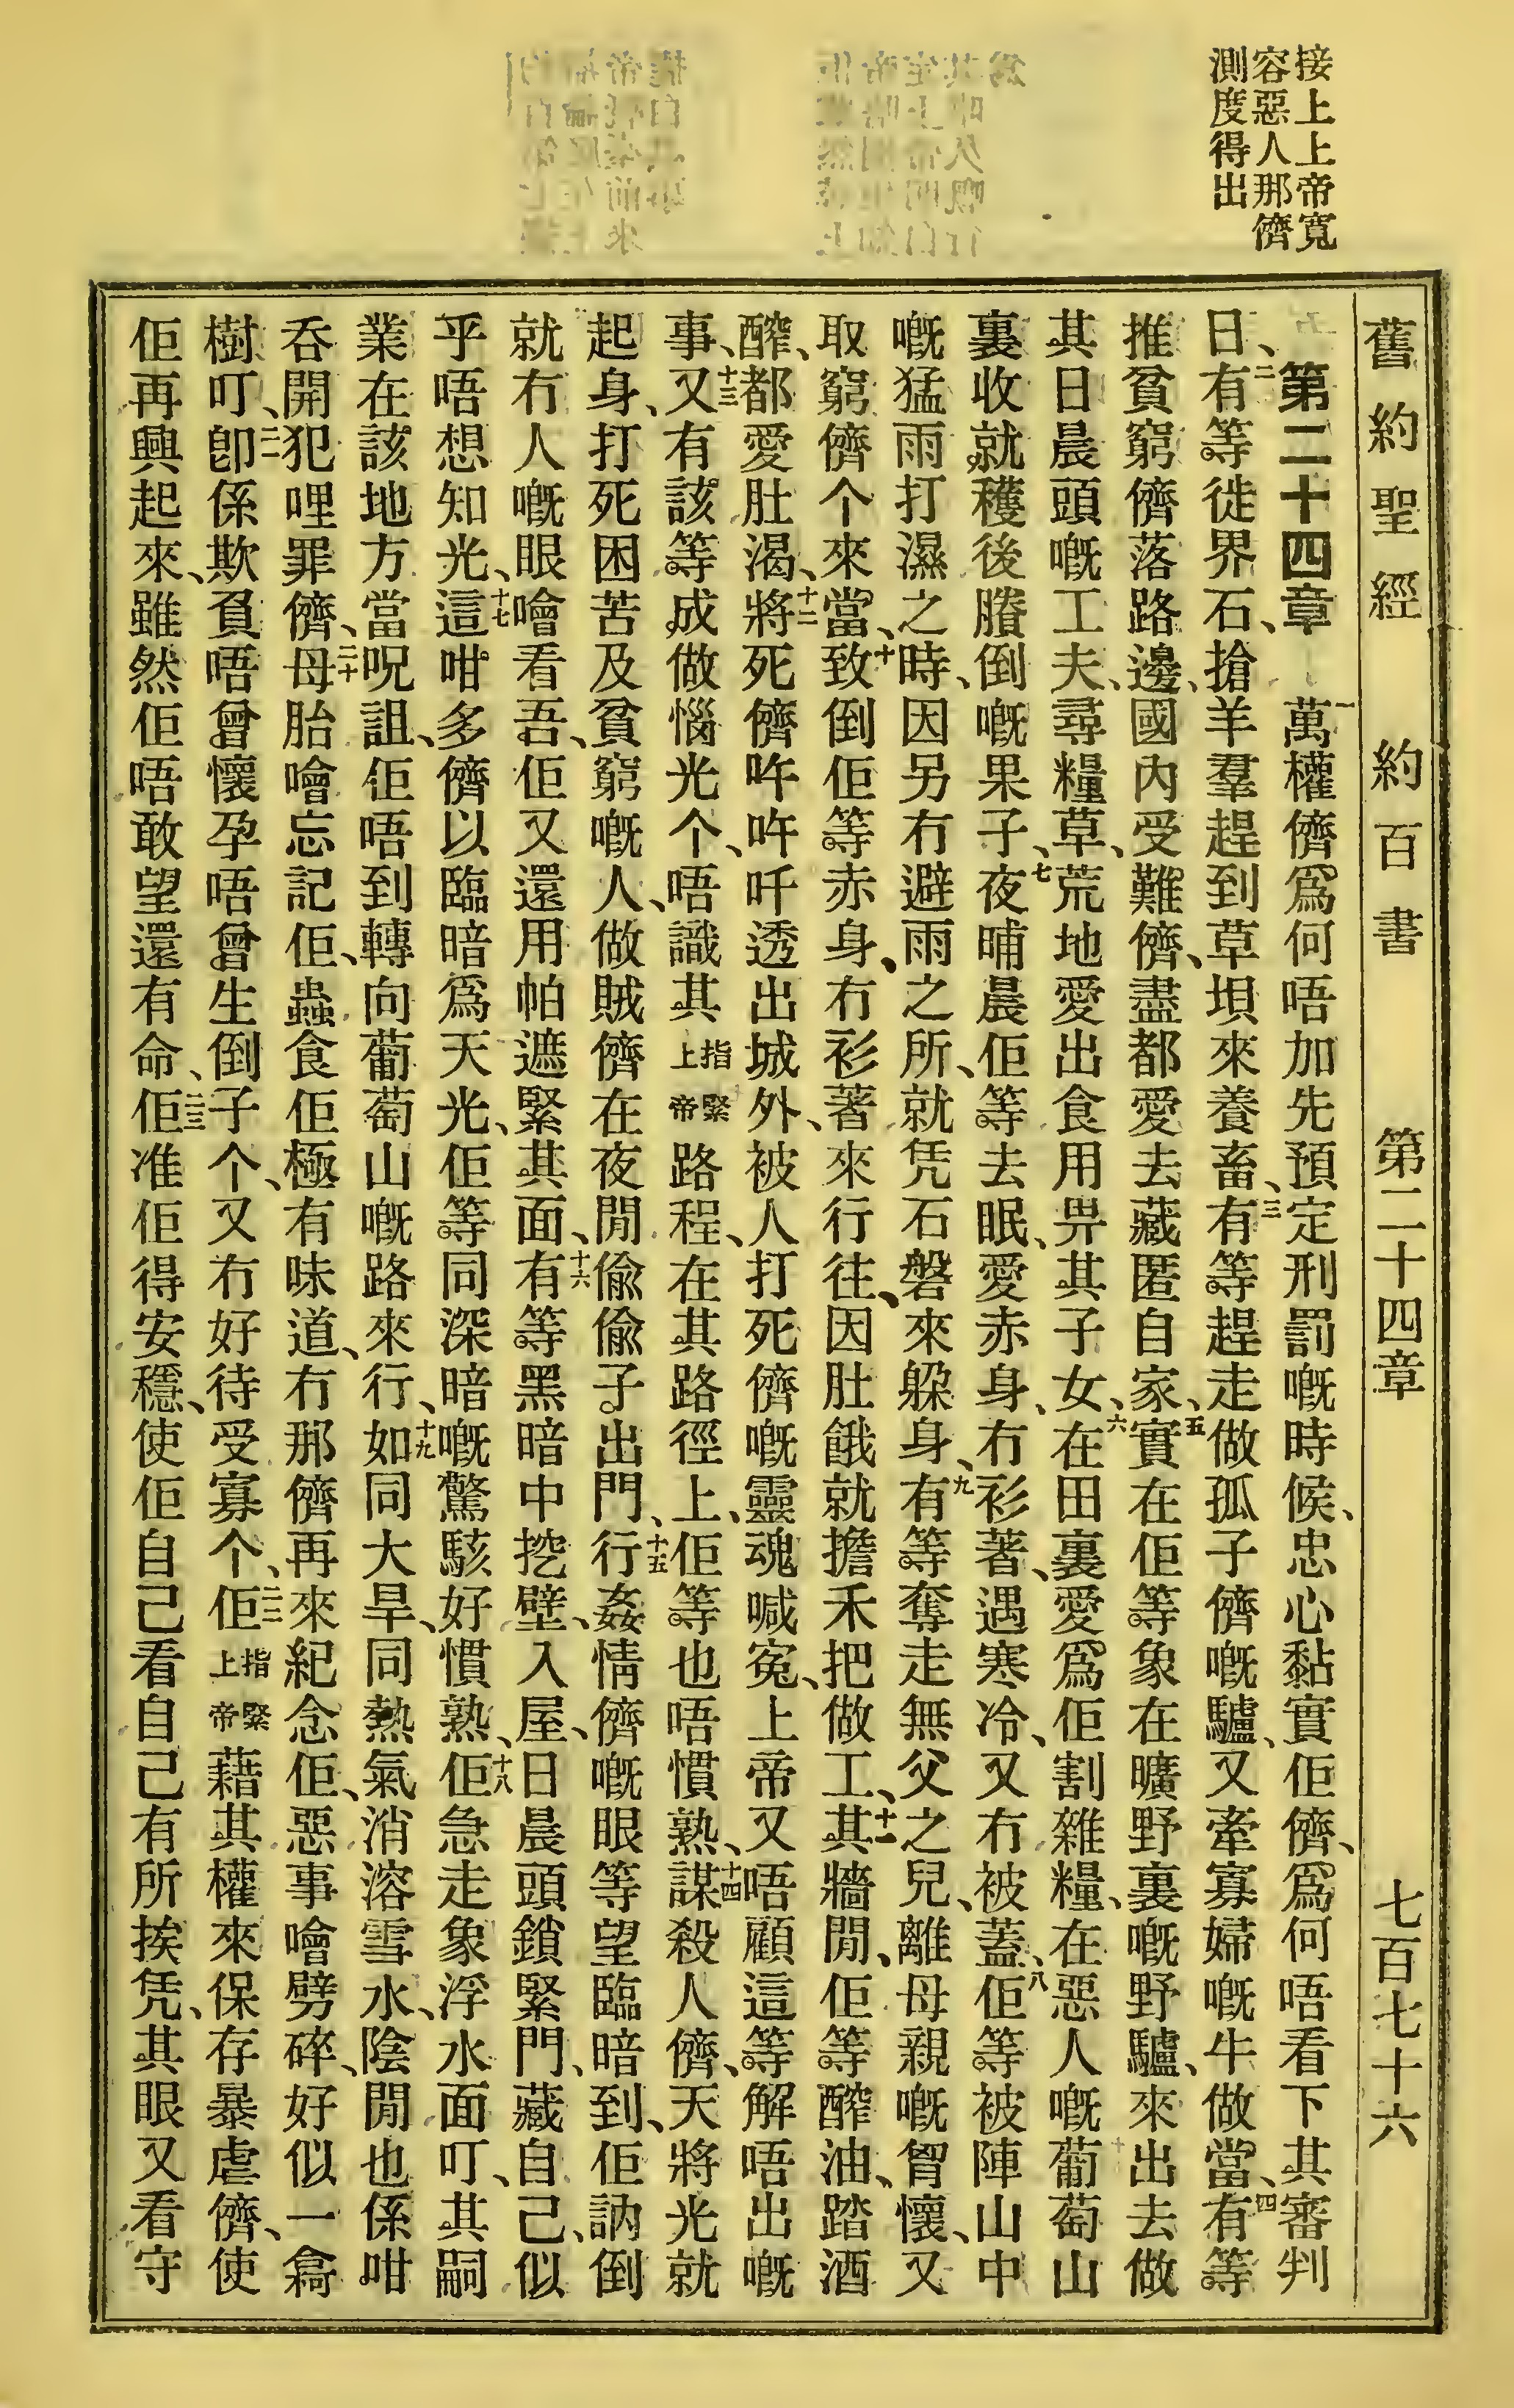 接上上帝寬
容惡人那儕
測度得出
舊約聖經 約百書 第二十四章 七百七十六
第二十四章 一萬權儕爲何唔加先預定刑罰嘅時候、忠心黏實佢儕、爲何唔看下其審判
日、二有等徙界石、搶羊羣趕到草坝來養畜、三有等趕走做孤子儕嘅驢、又牽寡婦嘅牛做當、四有等
推貧窮儕落路邊、國內受難儕、盡都愛去藏匿自家、五實在佢等象在曠野裏嘅野驢、來出去做
其日晨頭嘅工夫、尋糧草、荒地愛出食用畀其子女、六在田裏愛爲佢割雜糧、在惡人嘅葡萄山
裏收就穫後賸倒嘅果子、七夜晡晨佢等去眠、愛赤身、冇衫著、遇寒冷、又冇被蓋、八佢等被陣山中
嘅猛雨打濕之時、因另冇避雨之所、就凭石磐來躲身、九有等奪走無父之兒、離母親嘅胷懷、又
取窮儕个來當、十致倒佢等赤身、冇衫著、來行往、因肚餓就擔禾把做工、十一其牆閒、佢等醡油、踏酒
醡、都愛肚渴、十二將死儕吘吘吀透出城外、被人打死儕嘅靈魂喊寃、上帝又唔顧這等解唔出嘅
事、十三又有該等成做惱光个、唔識其指緊上帝路程、在其路徑上、佢等也唔慣熟、十四謀殺人儕、天將光就
起身、打死困苦及貧窮嘅人、做賊儕在夜閒偸偸子出門、十五行姦情儕嘅眼等望臨暗到、佢訥倒
就冇人嘅眼噲看吾、佢又還用帕遮緊其面、十六有等黑暗中挖壁、入屋、日晨頭鎖緊門、藏自己、似
乎唔想知光、十七這咁多儕以臨暗爲天光、佢等同深暗嘅驚駭好慣熟、十八佢急走象浮水面叮、其嗣
業在該地方當呪詛、佢唔到轉向葡萄山嘅路來行、十九如同大旱、同熱氣消溶雪水、陰閒也係咁
呑開犯哩罪儕、二十母胎噲忘記佢、蟲食佢極有味道、冇那儕再來紀念佢、惡事噲劈碎、好似一條
樹叮、二一卽係欺負唔曾懷孕唔曾生倒子个、又冇好待受寡个、二二佢指緊上帝藉其權來保存暴虐儕、使
佢再興起來、雖然佢唔敢望還有命、二三佢准佢得安穩、使佢自己看自己有所挨凭、其眼又看守